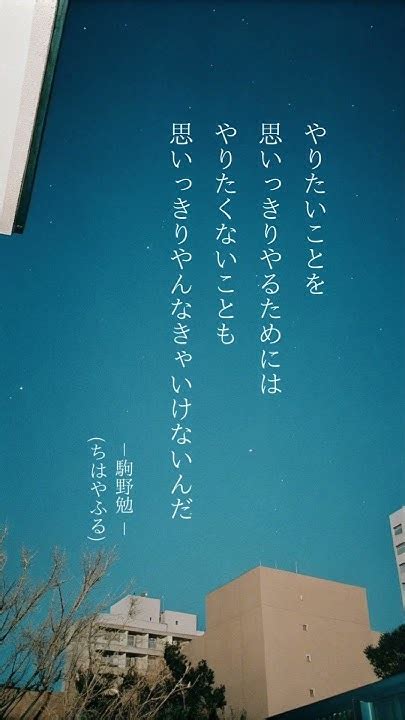 やりたいことを
思いっきりやるためには
やりたくないことも
思いっきりやんなきゃいけないんだ
－駒野勉－
(ちはやふる)